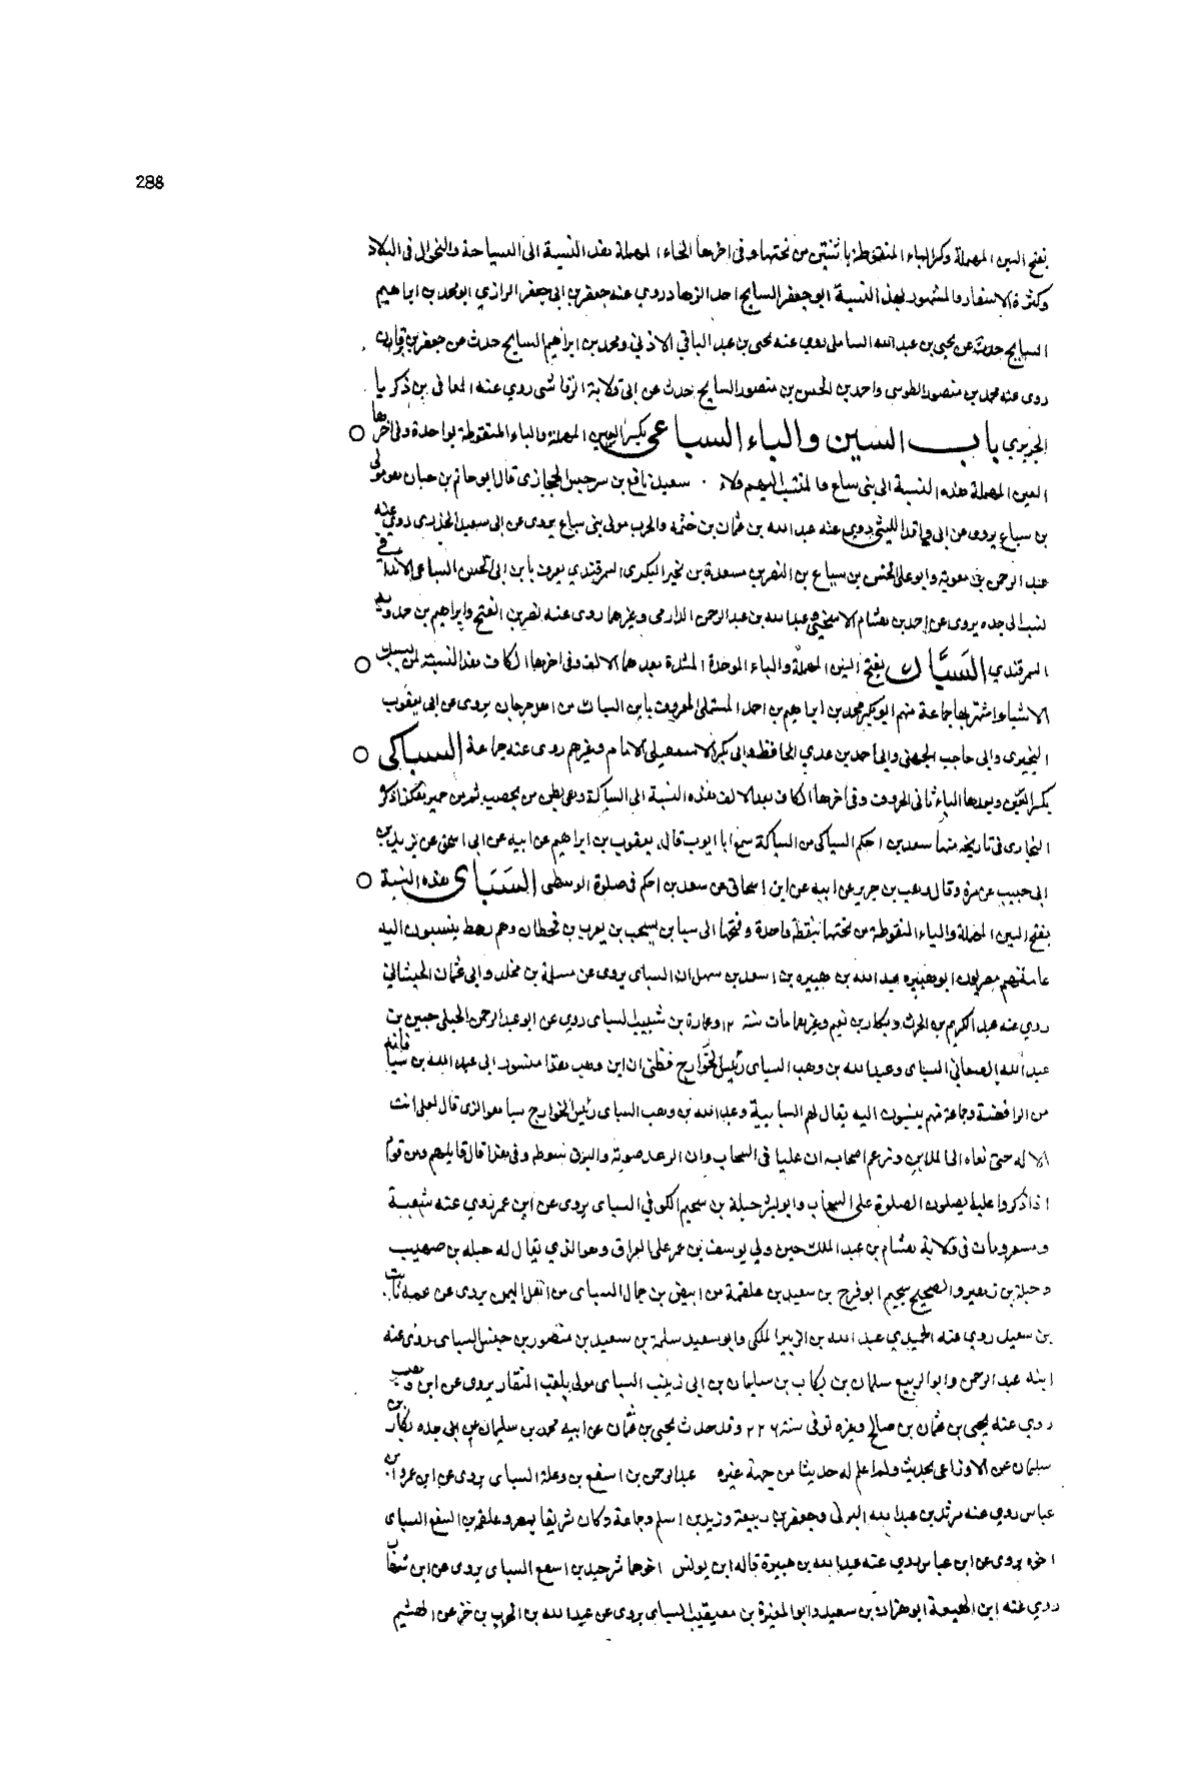 288
بفتح السين المهملة وكسر الياء المنقوطة باثنتين من تحتها وفي اخرها الحاء المهملة هذه النسبة الى السياحة والتجوال في البلاد
وكثرة الاسفار والمشهور بهذه النسبة ابو جعفر السايح احد الزهاد روي عنه جعفر بن ابى جعفر الرازي ابو محمد بن ابراهيم
السايح حدث عن يحيى بن عبد الله السا روي عنه يحيى بن عبد الباقي الاذني ومحمد بن ابراهيم السايح حدث عن جعفر بن
روى عنه محمد بن منصور الطوسى واحمد بن الحسن بن منصور السايح حدث عن ابى قلابة الرقاشى روي عنه المعافى بن زكريا
الجريري باب السين والباء السباعى بكسر السين المهملة والباء المنقوطة بواحدة وفى اخرها
العين المهملة هذه النسبة الى بنى سباع المنتسب اليهم ولاء سعيد نافع بن سرجس الحجازى قال ابو حاتم بن حبان هو مولى
بن سباع يروى عن ابى واقد الليثى روى عنه عبد الله بن عثمان بن خثيم والحرب مولى بنى سباع يروى عن ابى سعيد الخدرى روي عنه
عبد الرحمن بن معوية وابو على الحسن بن سباع بن النضر بن مسعدة بن بجير البكرى السمرقندي يعرف بابن ابى الحسن السباعى
نسب الى جده يروى عن احمد بن هشام الاستيخنى وعبد الله بن عبد الرحمن الدارمى وغيرهما روى عنه نصر بن الفتح وابراهيم بن حمدويه
السمرقندي السَبَّاك بفتح السين المهملة والباء الموحدة المشددة بعدهما الالف وفى اخرها الكاف هذه النسبة لمن يسبك
الاشياء واشتهر بها جماعة منهم ابو بكر محمد بن ابراهيم بن احمد المستملى المعروف بابن السباك من اهل جرجان يروى عن ابى يعقوب
البحيرى وابى حاجب الجهنى وابى احمد بن عدي الحافظ وابى بكر الاسمعيلى الامام وغيرهم روى عنه جماعة السباكى
بكسر السين وبعدها الباء ثانى الحروف وفى اخرها الكاف بعد الالف هذه النسبة الى السباكة وهى بطن من يحصب ثم من حمير هكذا ذكر
البخارى فى تاريخه منها سعد بن احكم السباكى من السباكة سمع ابا ايوب قال يعقوب بن ابراهيم عن ابيه عن ابن اسحق عن يزيد بن
ابى حبيب عن مرة وقال وهب بن جرير عن ابيه عن ابن اسحاق عن سعد بن احكم فى صلوة الوسطى السَبَاى هذه النسبة
بفتح السين المهملة والباء المنقوطة من تحتها بنقطة واحدة وفتحها الى سبا بن يشجب بن يعرب بن قحطان وهم رهط ينسبون اليه
عامتهم مصريون ابو هبيرة عبد الله بن هبيرة بن اسعد بن سهلان السباى يروى عن مسلمة بن مخلد وابى
روي عنه عبد الكريم بن الحرث وبكار بن نعيم وغيرهما مات سنة وعمارة بن شبيب السباى روي عن ابو عبد الرحمن الحبلى حنين بن
عبد الله الصنعاني السباى وعبد الله بن وهب السباى رئيس الخوارج فظنى ان ابن وهب هذا منسوب الى عبد الله بن سبا فانه
من الرافضة وجماعة منهم ينسبون اليه يقال لهم السبايية وعبد الله بن وهب السباى رئيس الخوارج سبا هو الذى قال لعلى انت
الاله حتى نفاه الى المداين وتزعم اصحابه ان عليا فى السحاب وان الرعد صوته والبرق سوطه وفى هذا قال قايلهم ومن قوم
اذا ذكروا عليا يصلون الصلوة على السحاب وابو جبلة بن سحيم الكوفي السباى يروى عن ابن عمر روي عنه شعبة
ومسعر ومات فى ولاية هشام بن عبد الملك حين ولي يوسف بن عمر على العراق وهو الذي يقال له جبله بن صهيب
وجبلة بن زهير والصحيح سحيم ابو فرج بن سعيد بن علقمة من ابيض بن حمال السباى من اهل اليمن يروى عن عمه ثابت
بن سعيد روي عنه الحميدي عبد الله بن الزبير المكى وابو سعيد سلمة بن سعيد بن منصور بن حنش السباى روى عنه
ابنه عبد الرحمن وابو الربيع سلمان بن بكار بن سليمان بن ابى زينب السباى مولى يلقب النقار يروى عن ابن وهب
روي عنه يحيى بن عثمان بن صالح وغيره توفى سنة ٢٢٦ وقد حدث يحيى بن عثمان عن ابيه محمد بن سليمان عن ابى جده بكار بن
سلمان عن الاوزاعى بحديث ولم اعلم له حديثا من جهة غيره عبد الرحمن بن اسفع بن وعلة السباى يروى عن ابن عمر وابن
عباس روي عنه مرثد بن عبد الله اليزنى وجعفر بن ربيعة وزيد بن اسلم وجماعة وكان شريفا بمصر وعلقمة بن اسفع السباى
اخوه يروى عن ابن عباس روي عنه عبد الله بن هبيرة قاله ابن يونس اخوهما شرحبيل بن اسفع السباى يروى عن ابن شهاب
روي عنه ابن لهيعة ابو بن سعيد وابو المغيرة بن معيقيب السباى يروى عن عبد الله بن الحرب بن جزء عن الهيثم